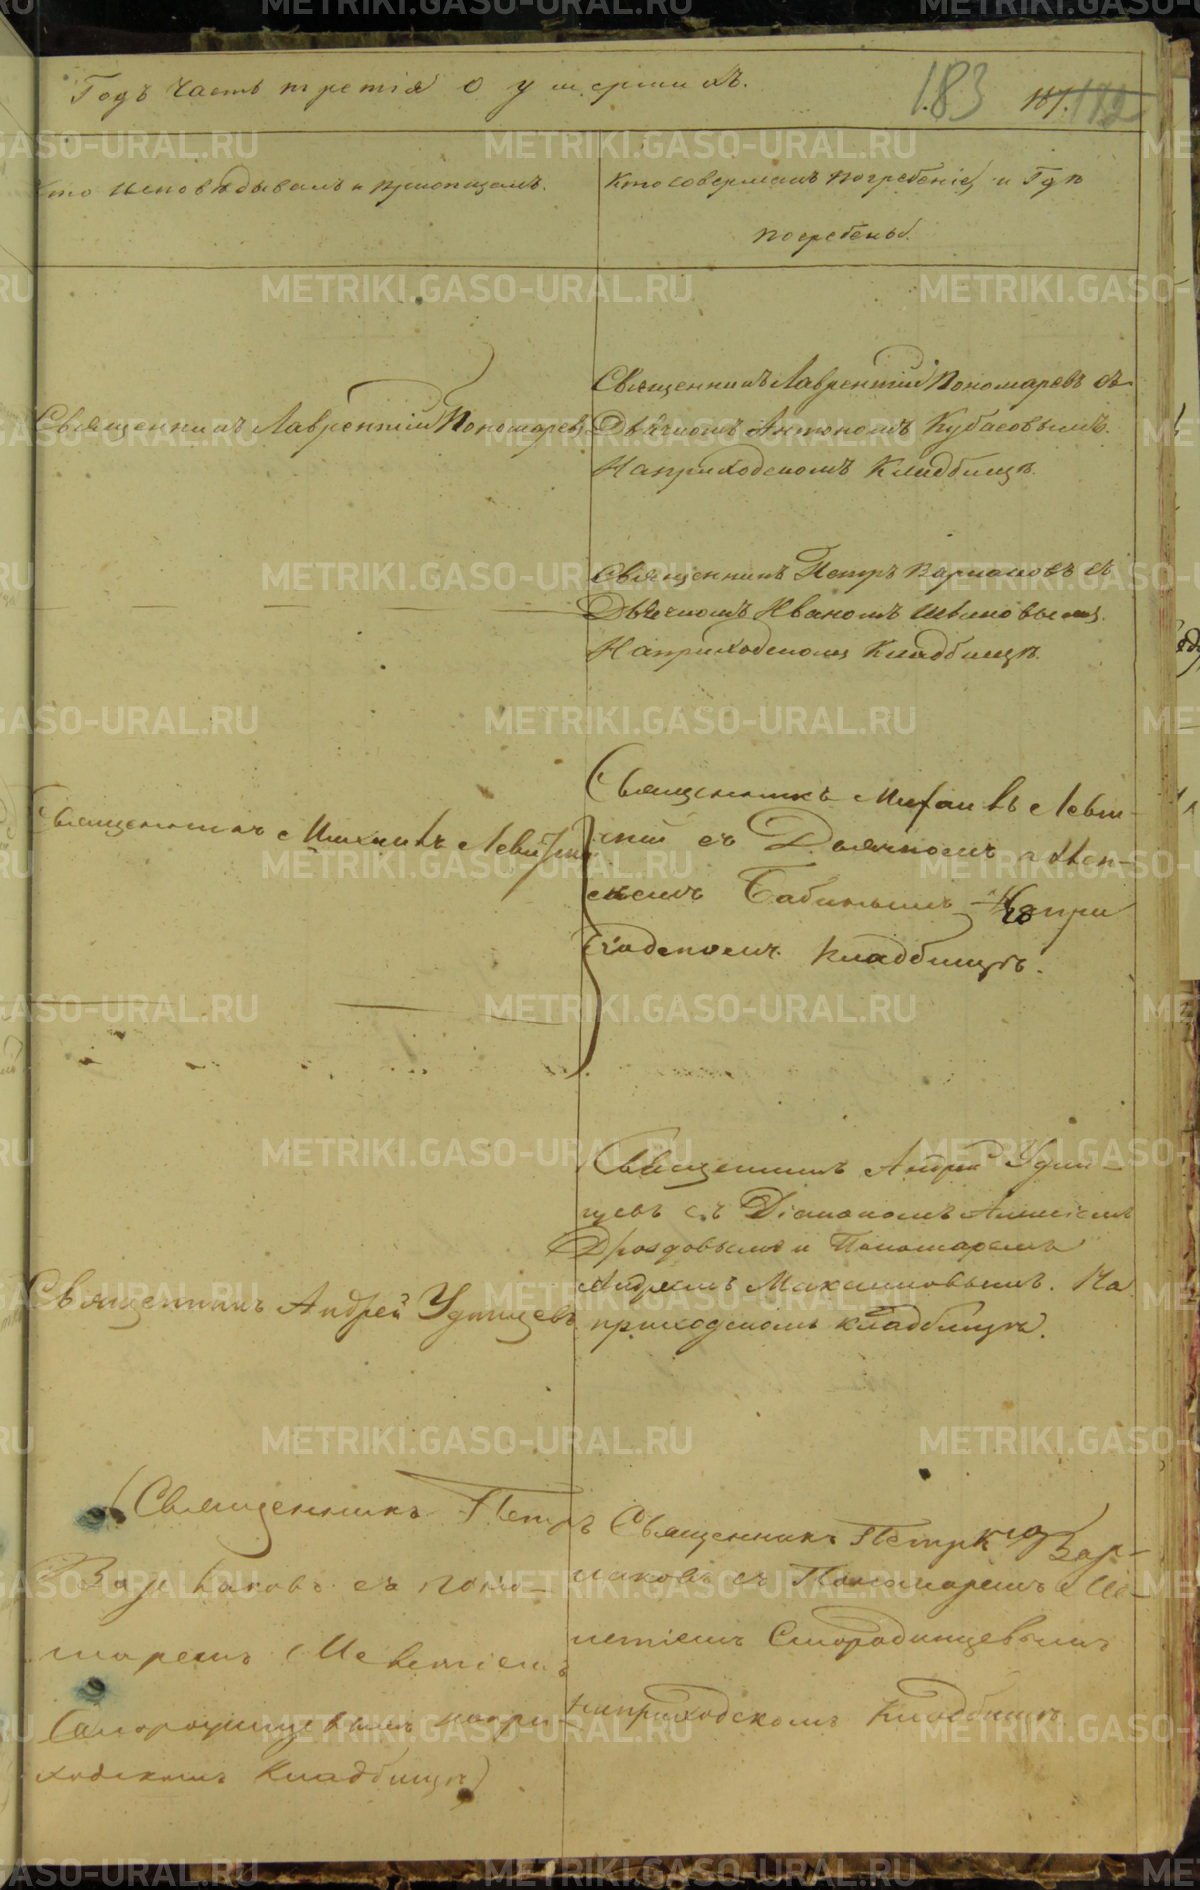 Годъ Часть третія О умершихъ.
183 187. 182
Кто исповѣдывалъ и пріопщалъ.
Кто совершалъ погребеніе, и Гдѣ
погребены.
Священникъ Лаврентій Пономаревъ
Священникъ Лаврентій Пономаревъ съ
Дьячкомъ Антономъ Кубасовымъ.
На приходскомъ Кладбищѣ.
Священникъ Петръ Варлаковъ съ
Дьячкомъ Иваномъ
На приходскомъ Кладбищѣ.
Священникъ Михаилъ Левитскій
Священникъ Михаилъ Левит-
скій съ Дьячкомъ Алек-
сѣемъ Бабинымъ На при
ходскомъ кладбищѣ.
Священникъ Андрей Удинцевъ
Священникъ Андрей Удин-
цевъ съ Діакономъ
Дроздовымъ и Пономаремъ
Андреемъ Максимовымъ. На
приходскомъ кладбищѣ.
(Священникъ Петръ
Варлаковъ съ Поно-
маремъ Мелетіемъ
Смородинцевымъ на при-
ходскомъ Кладбищѣ)
Священникъ Петръ Вар-
лаковъ съ Пономаремъ Ме-
летіемъ Смородинцевымъ
на приходскомъ Кладбищѣ
METRIKI.GASO-URAL.RU